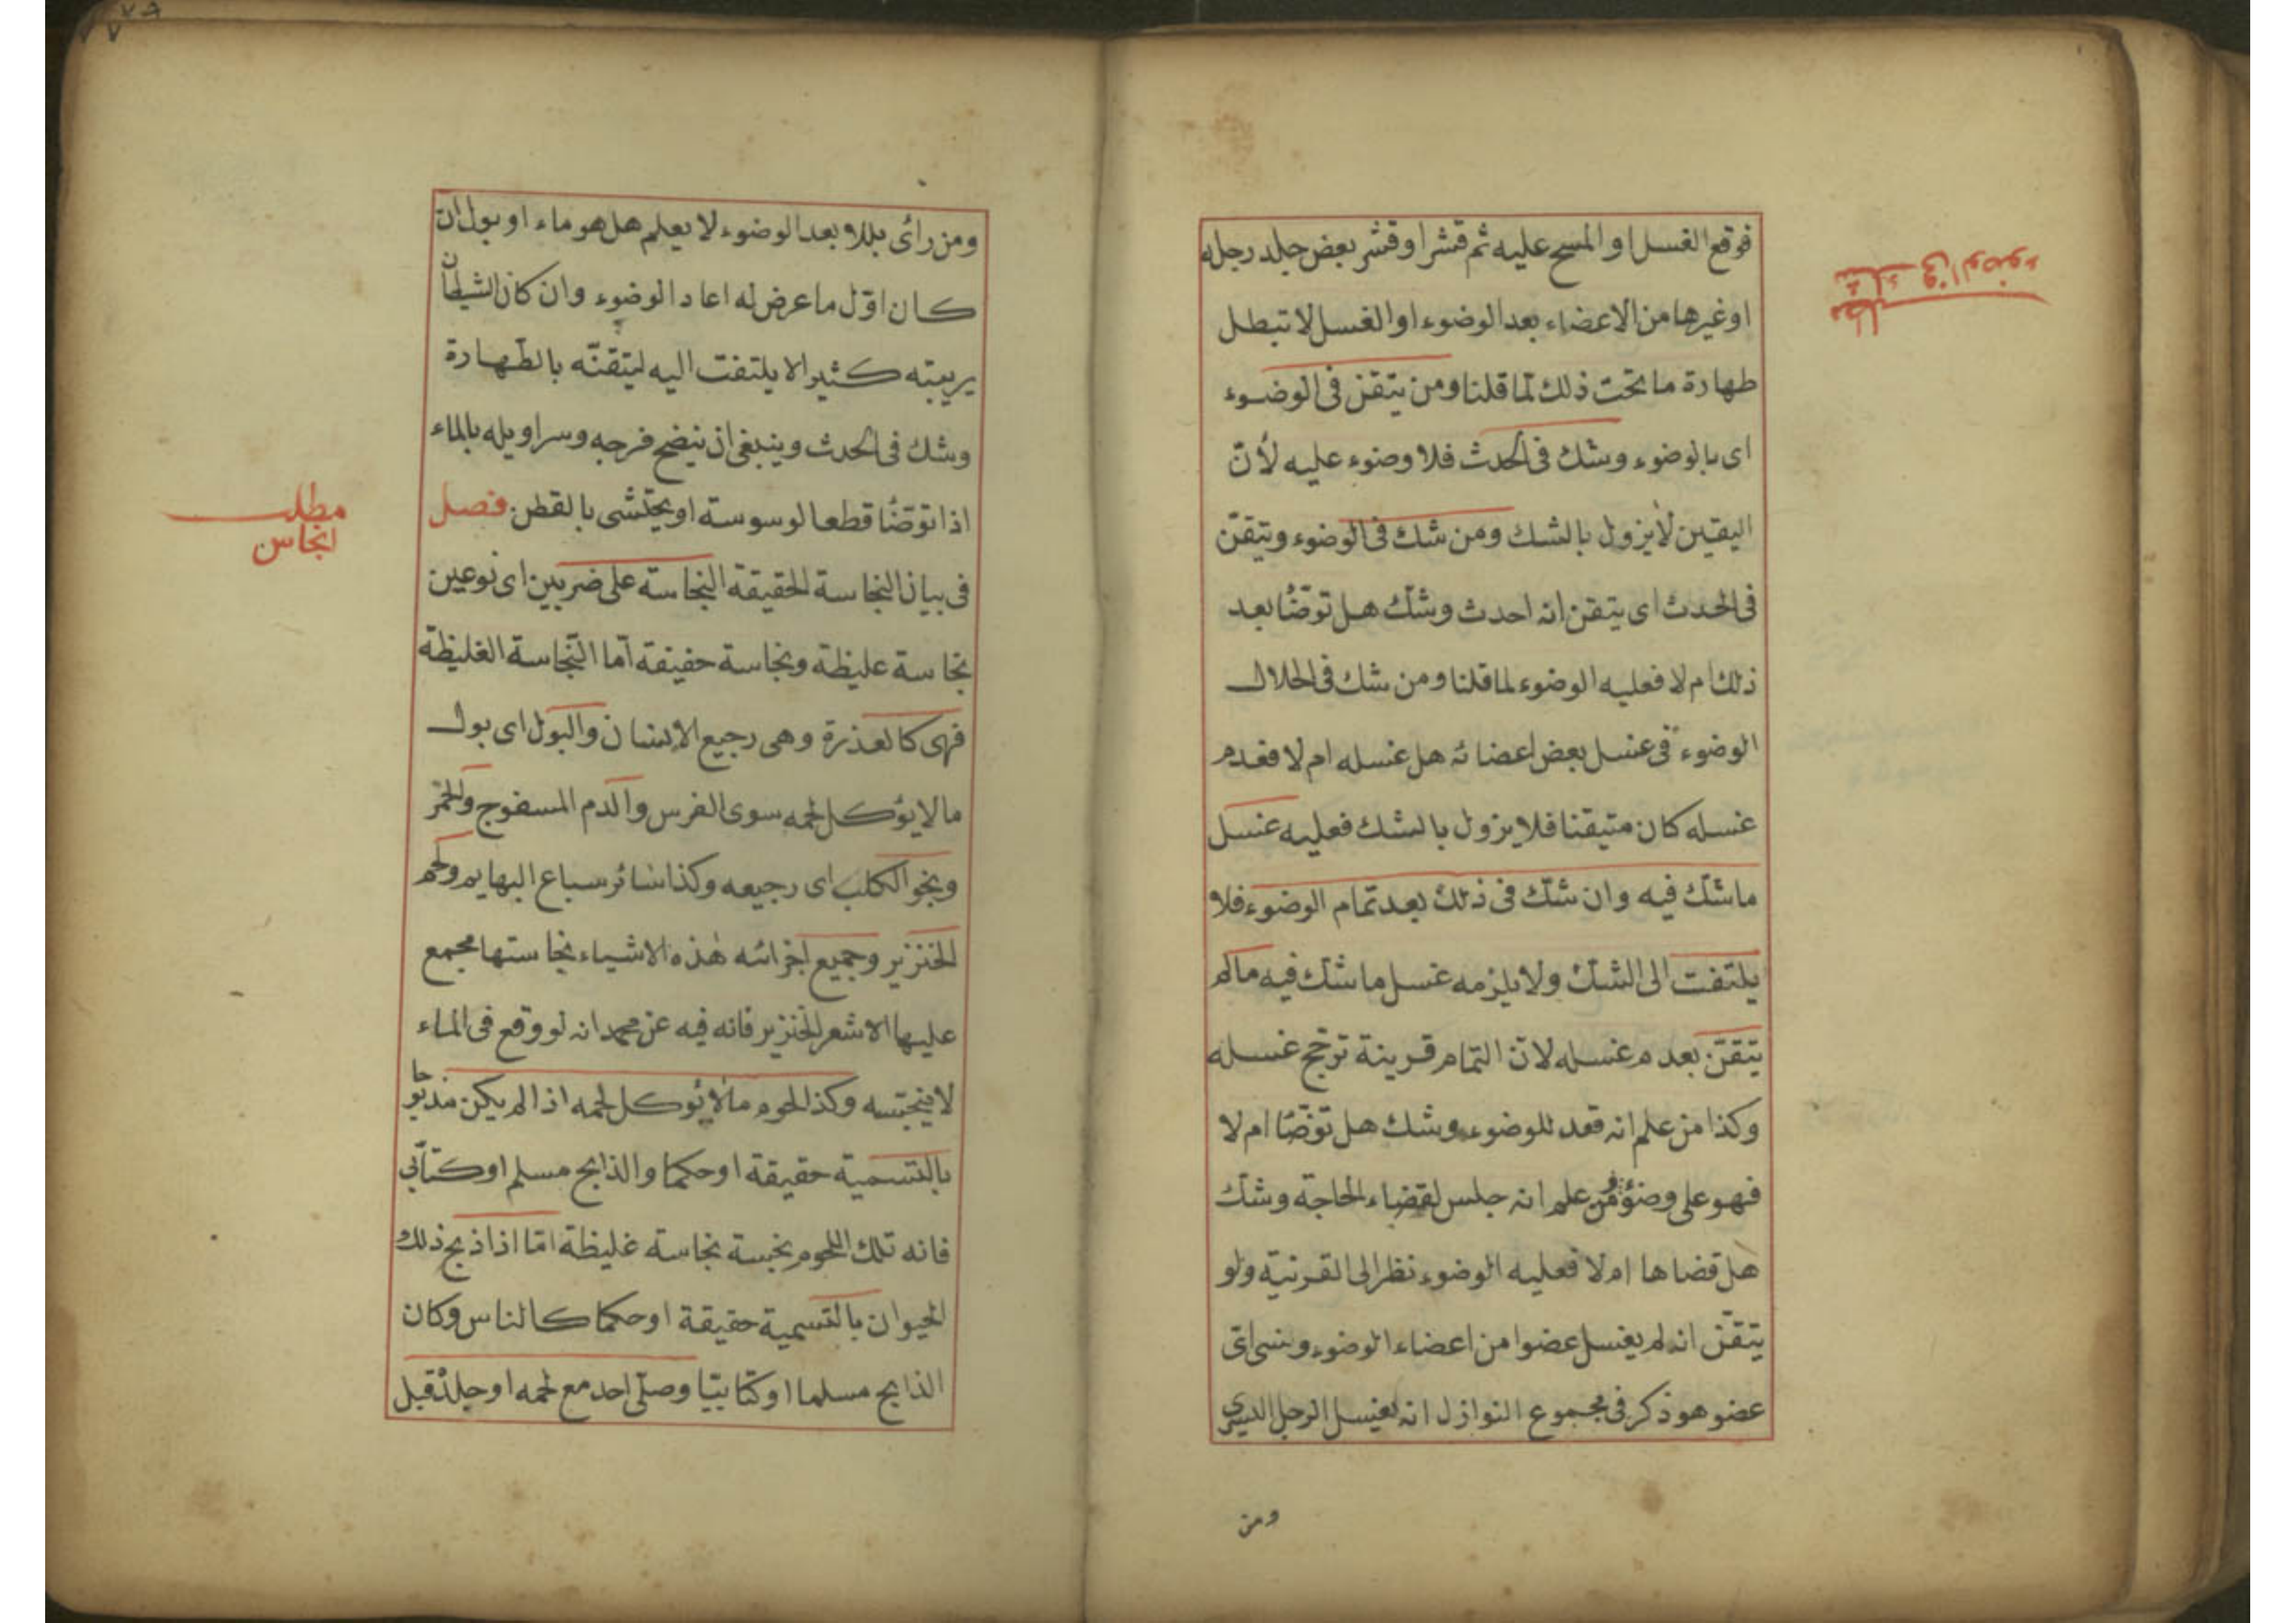 فوقع الغسل او المسح عليه ثم قشر او قشر بعض جلد رجله
او غيرها من الاعضاء بعد الوضوء او الغسل لا تبطل
طهارة ما تحت ذلك لما قلنا ومن يتقن فى الوضوء
اى بالوضوء وشك فى الحدث فلا وضوء عليه لأنّ
اليقين لا يزول بالشك ومن شك فى الوضوء وتيقّن
فى الحدث اى يتقن انه احدث وشكّ هل توضّأ بعد
ذلك ام لا فعليه الوضوء لما قلنا ومن شك فى الخلال
الوضوء فى غسل بعض اعضائه هل غسله ام لا فعدم
غسله كان متيقنا فلا يزول بالشك فعليه غسل
ما شكّ فيه وان شكّ فى ذلك بعد تمام الوضوء فلا
يلتفت الى الشكّ ولا يلزمه غسل ما شكّ فيه ما لم
يتقّن بعدم غسله لانّ التمام قرينة ترجّح غسله
وكذا من علم انه قعد للوضوء وشك هل توضّأ ام لا
فهو على وضوء ومن علم انه جلس لقضاء الحاجة وشكّ
هل قضاها ام لا فعليه الوضوء نظرا الى القرنية ولو
يتقّن انه لم يغسل عضوا من اعضاء الوضوء ونسى اىّ
عضو هو ذكر فى مجموع النوازل انه يغسل الرجل اليسرى
ومن
شك فى الوضوء
مطلب
ومن رأى بللا بعد الوضوء لا يعلم هل هو ماء او بول ان
كان اوّل ما عرض له اعاد الوضوء وان كان الشيطان
يريبته كثيرا لا يلتفت اليه ليتقنّه بالطّهارة
وشك فى الحدث وينبغى ان ينضح فرجه وسراويله بالماء
اذا توضّأ قطعا لوسوسة او يحتشى بالقطن فصل
فى بيان النجاسة الحقيقة النجاسة على ضربين اى نوعين
نجاسة غليظة ونجاسة خفيفة امّا النّجاسة الغليظة
فهى كالعذرة وهى رجيع الانسان والبول اى بول
ما لا يؤكل لحمه سوى الفرس والدم المسفوح والخمر
ونجو الكلب اى رجيعه وكذا سائر سباع البهايم ولحم
الخنزير وجميع اجزائه هذه الاشياء نجاستها مجمع
عليها الا شعر الخنزير فانه فيه عن محمد انه لو وقع فى الماء
لا ينجّسه وكذا لحوم ما لا يؤكل لحمه اذا لم يكن مذبوحا
بالتسمية حقيقة او حكما والذابح مسلم او كتابى
فانه تلك اللحوم نجسة نجاسة غليظة امّا اذا ذبح ذلك
الحيوان بالتسمية حقيقة او حكما كالناس وكان
الذابح مسلما او كتابيّا وصلّى احد مع لحمه او جلده قبل
مطلب
انجاس